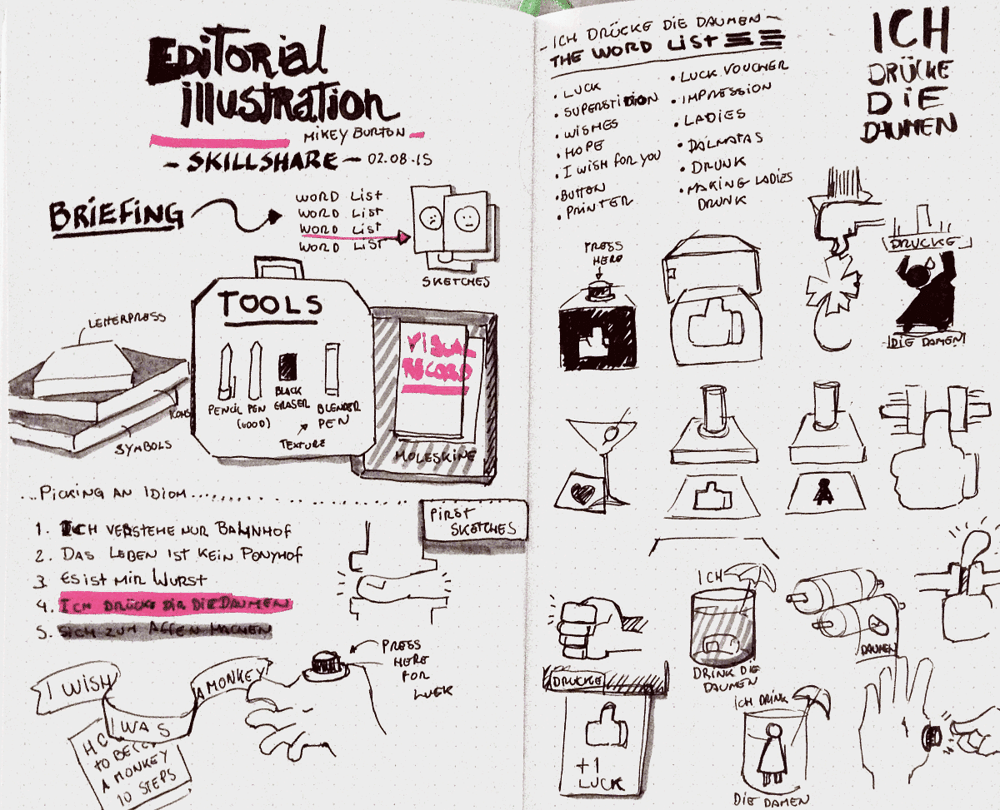 EDITORIAL
ILLUSTRATION
MIKEY BURTON
- SKILLSHARE - 02.08.15
BRIEFING
WORD LIST
WORD LIST
WORD LIST
WORD LIST
SKETCHES
TOOLS
LETTERPRESS
ICONS
SYMBOLS
PENCIL
PEN
(GOOD)
BLACK
ERASER
BLENDER
PEN
TEXTURE
VISUAL
RECORD
MOLESKINE
...PICKING AN IDIOM...
1. ICH VERSTEHE NUR BAHNHOF
2. DAS LEBEN IST KEIN PONYHOF
3. ES IST MIR WURST
4. ICH DRÜCKE DIR DIE DAUMEN
5. SICH ZUM AFFEN MACHEN
FIRST
SKETCHES
I WISH
I WAS
A MONKEY
TO BECO
A MONKEY
10 STEPS
PRESS
HERE
FOR
LUCK
- ICH DRÜCKE DIE DAUMEN -
THE WORD LIST
• LUCK
• SUPERSTITION
• WISHES
• HOPE
• I WISH FOR YOU
• BUTTON
• PRINTER
• LUCK VOUCHER
• IMPRESSION
• LADIES
• DALMATAS
• DRUNK
• MAKING LADIES
DRUNK
ICH
DRÜCKE
DIE
DAUMEN
PRESS
HERE
DRUCKE
DIE DAMEN
DRUCKE
+1
LUCK
ICH
DRINK DIE
DAUMEN
DAUMEN
ICH DRINK
DIE DAMEN